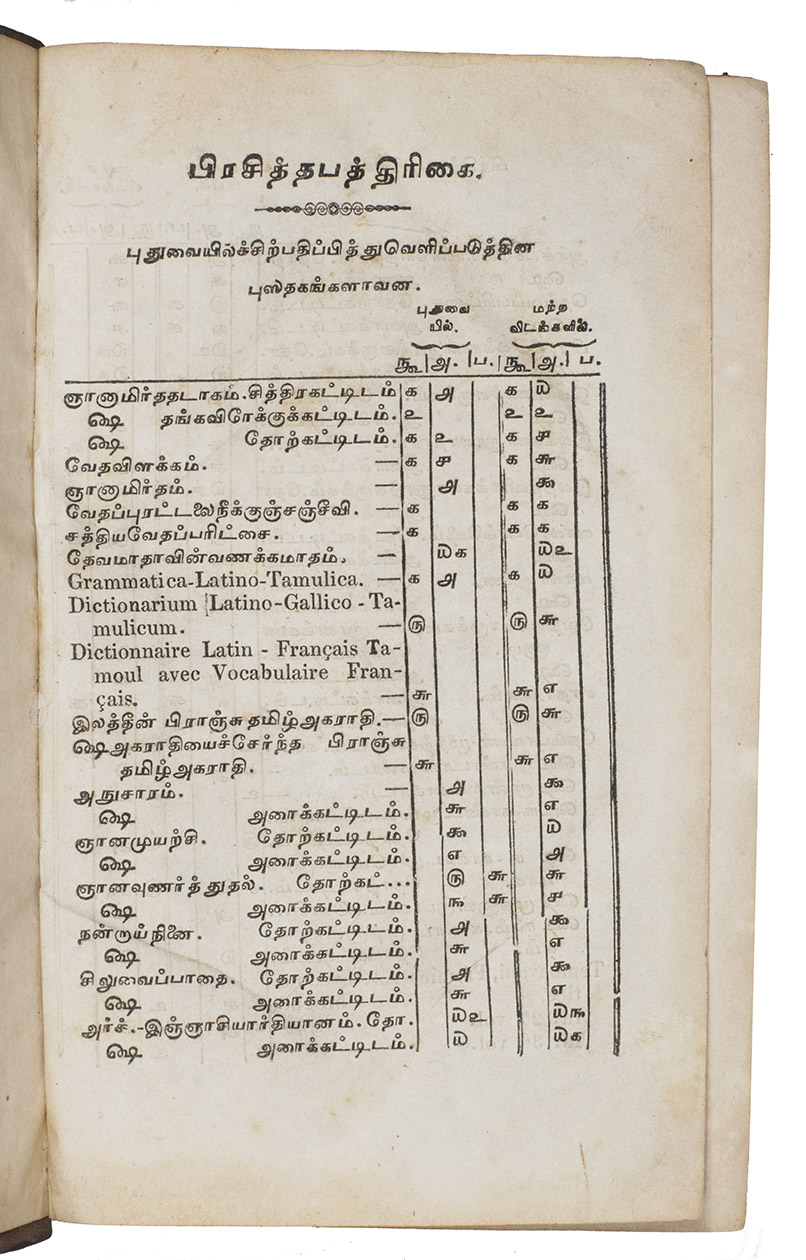 பிரசித்தபத்திரிகை.
புதுவையிலச்சிற்பதிப்பித்துவெளிப்படுத்தின
புஸ்தகங்களாவன.
புதுவை மற்ற
யில். விடங்களில்.
௹ அ. ப. ௹ அ. ப.
ஞானாமிர்ததடாகம். சித்திரகட்டிடம் க அ க ௰
௸ தங்கவிரேக்குக்கட்டிடம். ௨ ௨ ௨
௸ தோற்கட்டிடம். க ௨ க ௪
வேதவிளக்கம். — க ௪ க ௬
ஞானாமிர்தம். அ ௯
வேதப்புரட்டலைநீக்குஞ்சஞ்சீவி. — க க க
சத்தியவேதப்பரிட்சை. — க க க
தேவமாதாவின்வணக்கமாதம். — ௰க ௰௨
Grammatica-Latino-Tamulica. — க அ க ௰
Dictionarium Latino-Gallico - Ta-
mulicum. — ௫ ௫ ௬
Dictionnaire Latin - Français Ta-
moul avec Vocabulaire Fran-
çais. — ௬ ௬ எ
இலத்தீன் பிராஞ்சு தமிழ்அகராதி. — ௫ ௫ ௬
௸அகராதியைச்சேர்ந்த பிராஞ்சு
தமிழ்அகராதி. — ௬ ௬ எ
அநுசாரம். — அ ௯
௸ அரைக்கட்டிடம். ௬ எ
ஞானமுயற்சி. தோற்கட்டிடம். ௯ ௰
௸ அரைக்கட்டிடம். எ அ
ஞானவுணர்த்துதல். தோற்கட்... ௫ ௬ ௬
௸ அரைக்கட்டிடம். ௩ ௬ ௪
நன்றாய்நினை. தோற்கட்டிடம். அ ௯
௸ அரைக்கட்டிடம். ௬ எ
சிலுவைப்பாதை. தோற்கட்டிடம். அ ௯
௸ அரைக்கட்டிடம். ௬ எ
அர்ச்.-இஞ்ஞாசியார்தியானம். தோ. ௰௨ ௰௩
௸ அரைக்கட்டிடம். ௰ ௰க